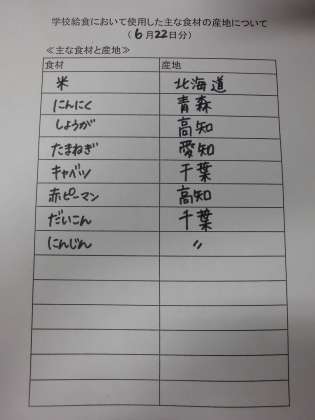 学校給食において使用した主な食材の産地について
（6月22日分）
≪主な食材と産地≫
食材 産地
米 北海道
にんにく 青森
しょうが 高知
たまねぎ 愛知
キャベツ 千葉
赤ピーマン 高知
だいこん 千葉
にんじん 〃